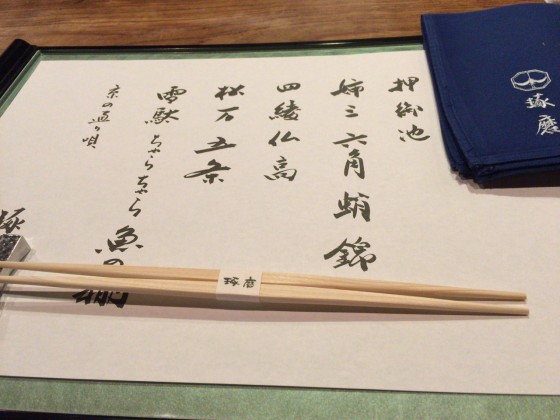 押御池
姉三六角蛸錦
四綾仏高
松万五条
雪駄ちゃらちゃら魚の
京の通り唄
琢
琢磨
琢磨